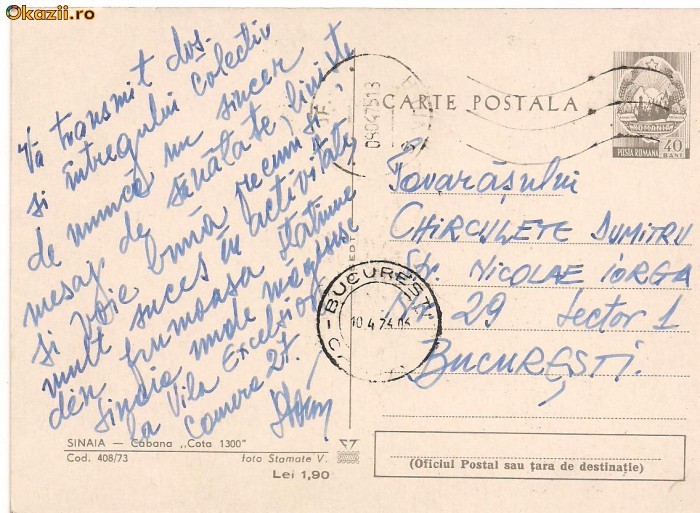 Okazii.ro
Vă transmit dvs.
și întregului colectiv
de muncă un sincer
mesaj de sănătate, liniște
și voie bună precum și
mult succes în activitate,
din frumoasa stațiune
Sinaia unde mă găsesc
la Vila Excelsior
camera 27.
CARTE POSTALA
ROMANIA
POSTA ROMANA
40
BANI
Tovarășului
CHIRCULETE DUMITRU
Str. NICOLAE IORGA
Nr. 29 Sector 1
BUCUREȘTI.
BUCURESTI
10.4.74
SINAIA — Cabana „Cota 1300"
Cod. 408/73
foto Stamate V.
Lei 1,90
(Oficiul Postal sau țara de destinație)